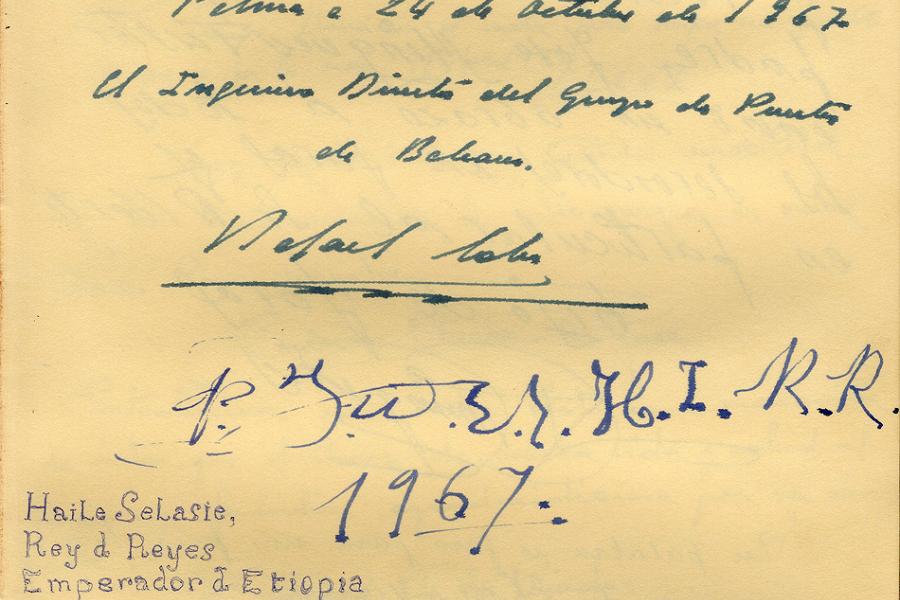 Palma a 24 de octubre de 1967
El Ingeniero Director del Grupo de Puertos
de Baleares.
Rafael
H.I. R.R.
1967.
Haile Selasie,
Rey d Reyes
Emperador d Etiopia